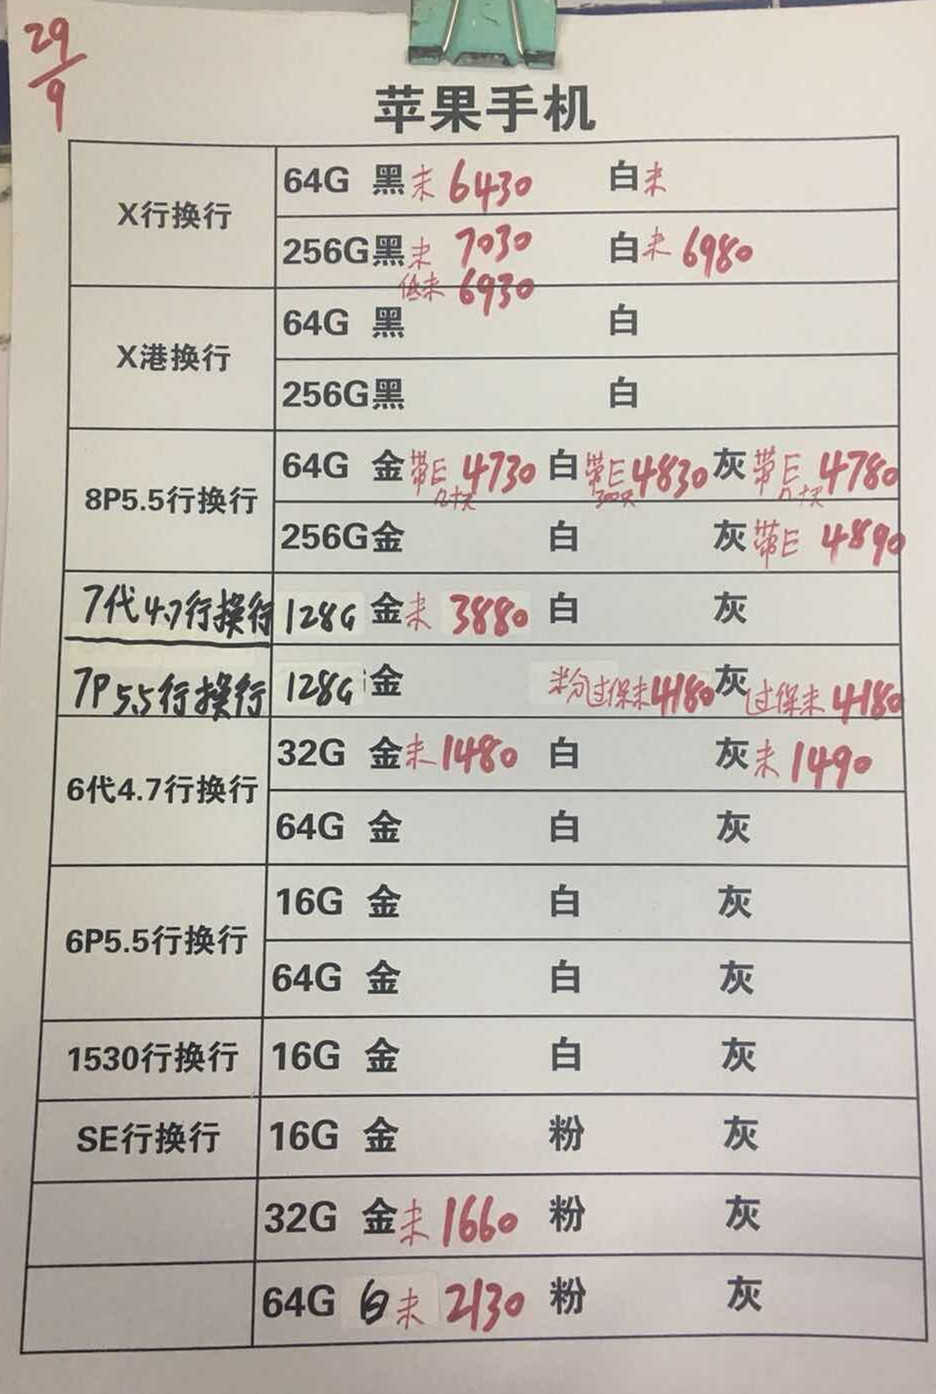 29/9
苹果手机
X行换行 64G 黑未 6430 白未
256G黑未 7030 白未 6980
低未 6930
X港换行 64G 黑 白
256G黑 白
8P5.5行换行 64G 金带E 4730 白带E 4830 灰带E 4780
几十天 300天 几十天
256G金 白 灰带E 4890
7代4.7行换行 128G 金未 3880 白 灰
7P5.5行换行 128G 金 粉过保未4180 灰过保未 4180
6代4.7行换行 32G 金未1480 白 灰未 1490
64G 金 白 灰
6P5.5行换行 16G 金 白 灰
64G 金 白 灰
1530行换行 16G 金 白 灰
SE行换行 16G 金 粉 灰
32G 金未 1660 粉 灰
64G 白未 2130 粉 灰